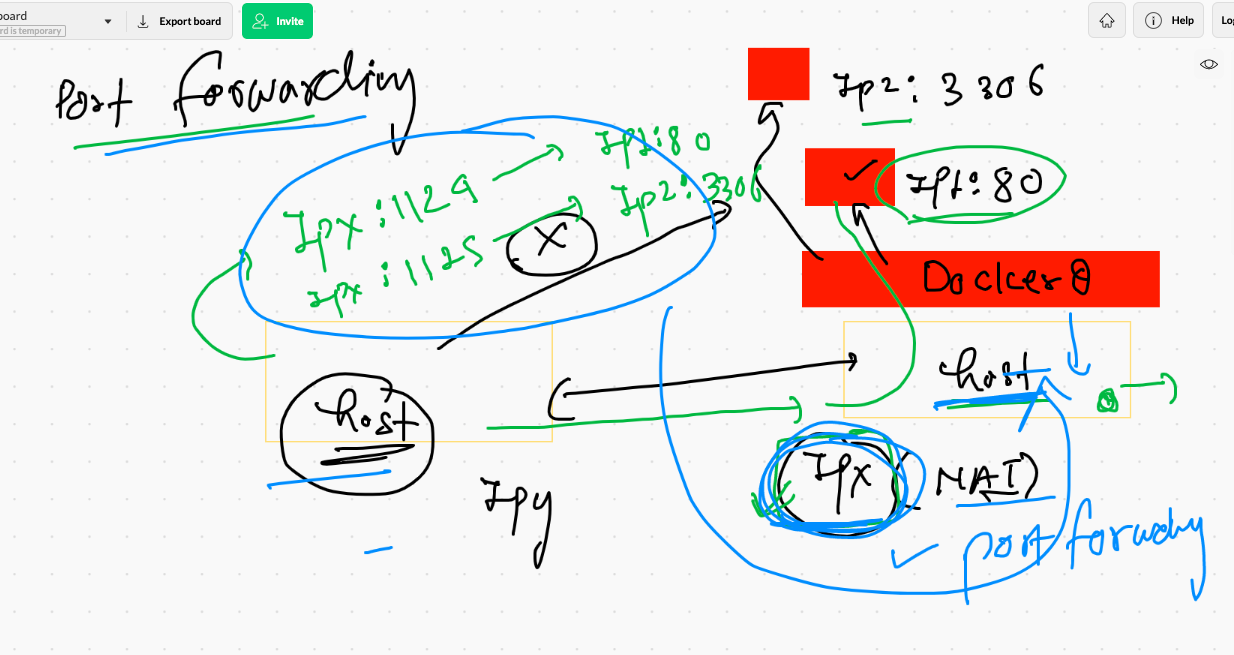 board
rd is temporary
Export board
Invite
Help
Log
Port forwarding
Ip2: 3306
Ip1:80
Ipx:1124 → Ip1:80
Ipx:1125 → Ip2:3306
X
Ip1:80
Docker0
host
host
Ipx (NAT)
Ipy
port forwady